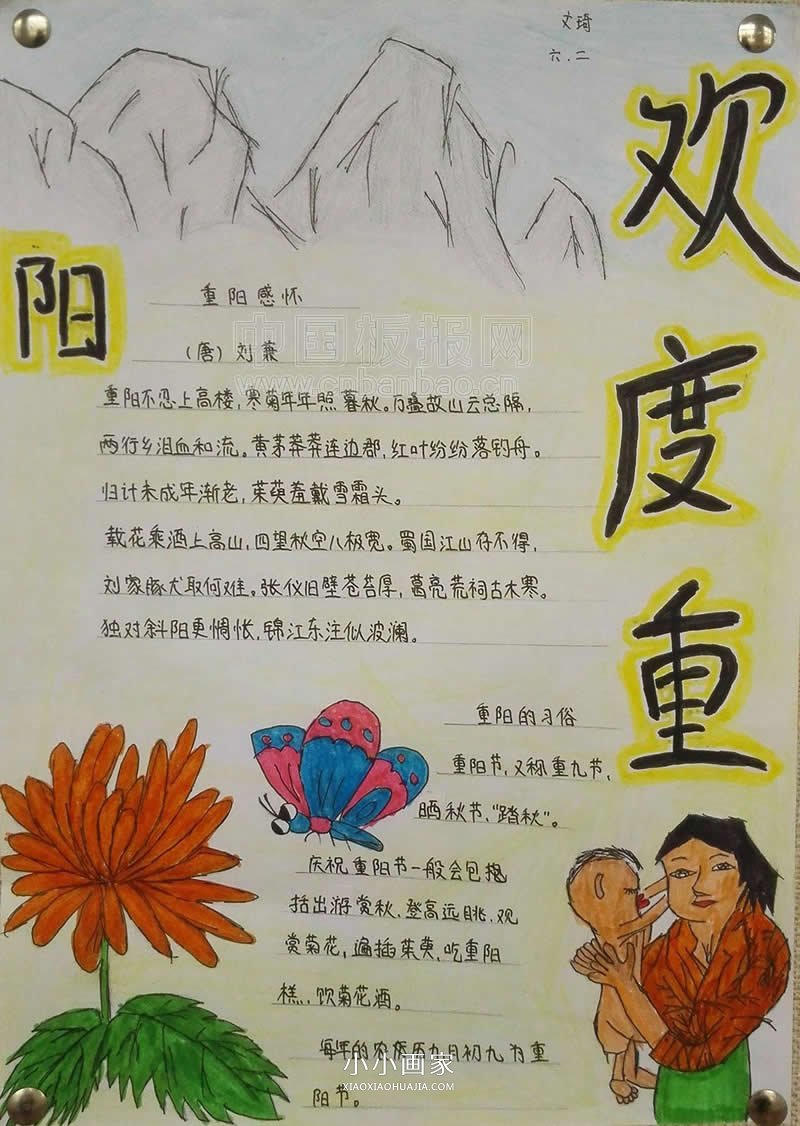 文琦
六.二
欢
度
重
阳
重阳感怀
(唐)刘兼
重阳不忍上高楼,寒菊年年照暮秋。万叠故山云总隔,
两行乡泪血和流。黄茅莽莽连边郡,红叶纷纷落钓舟。
归计未成年渐老,茱萸羞戴雪霜头。
载花乘酒上高山,四望秋空八极宽。蜀国江山存不得,
刘家豚犬取何难。张仪旧壁苍苔厚,葛亮荒祠古木寒。
独对斜阳更惆怅,锦江东注似波澜。
中国板报网
www.cnbanbao.cn
重阳的习俗
重阳节,又称重九节,
晒秋节,“踏秋”。
庆祝重阳节一般会包抱
括出游赏秋,登高远眺,观
赏菊花,遍插茱萸,吃重阳
糕,饮菊花酒。
每年的农历九月初九为重
阳节。
小小画家
XIAOXIAOHUAJIA.COM